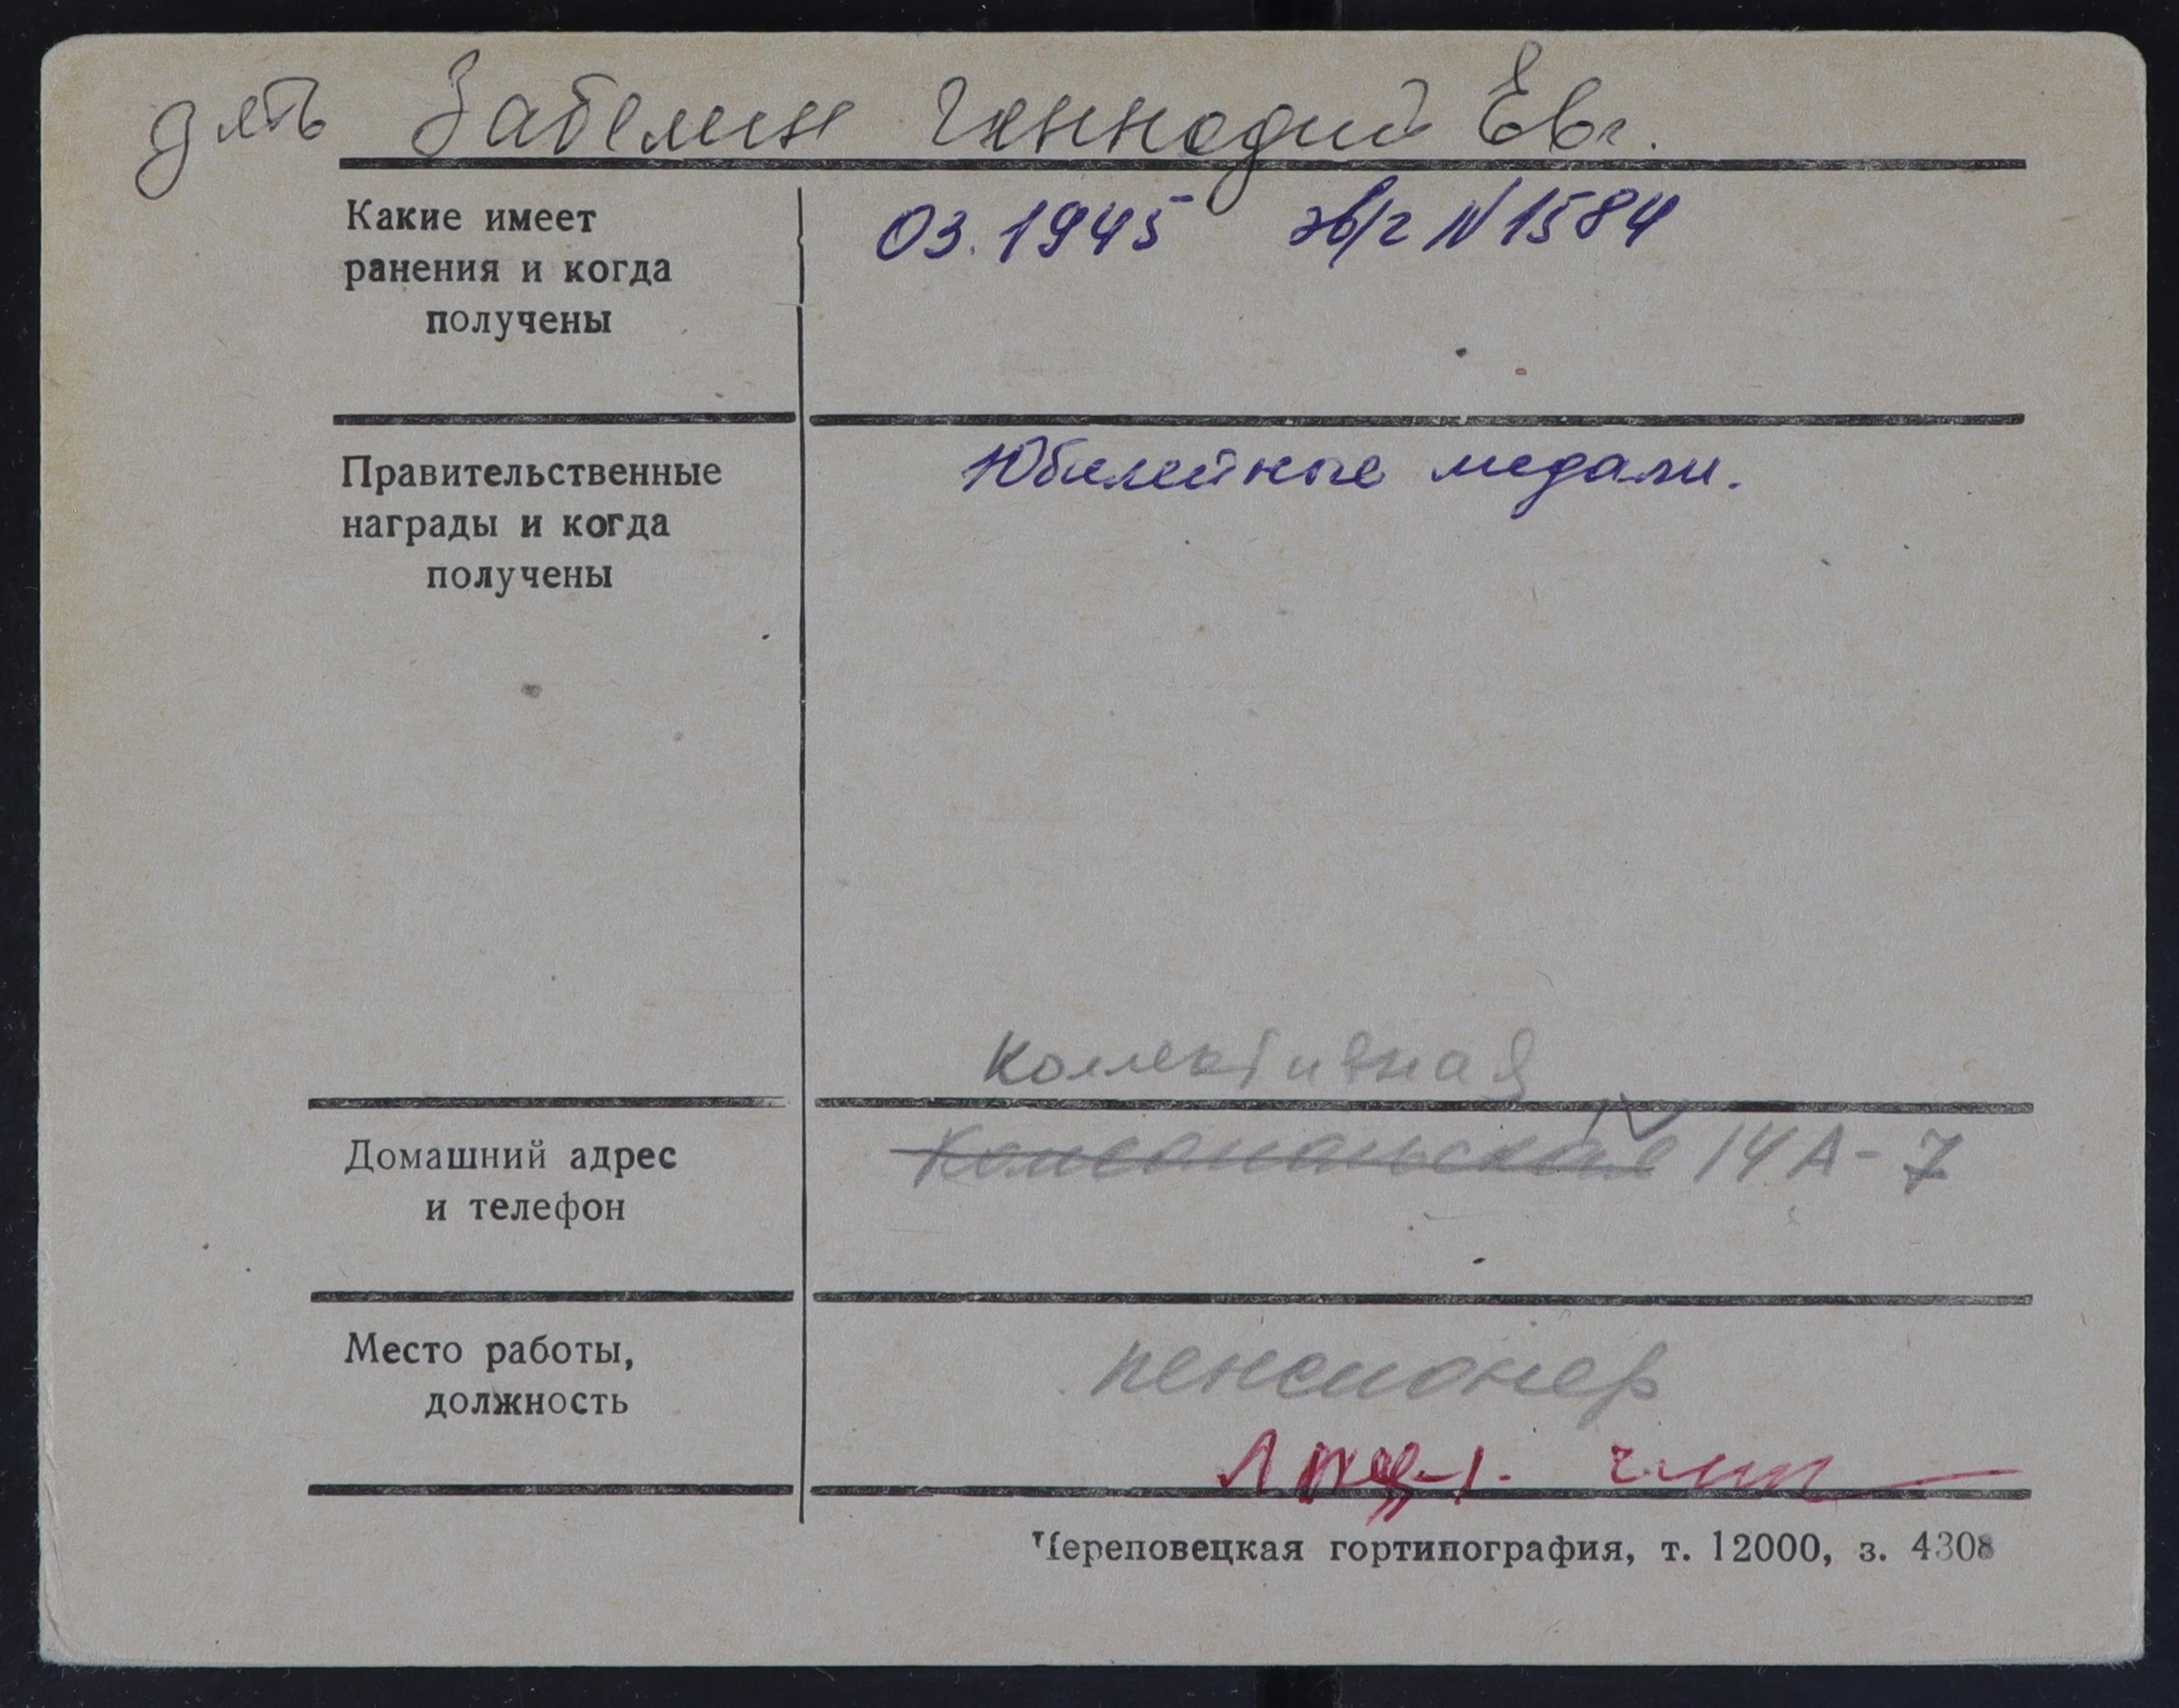 зять Забелин Геннадий Евг.
Какие имеет
ранения и когда
получены
03.1945 эв/г N 1584
Правительственные
награды и когда
получены
Юбилейные медали.
Коллективная
Домашний адрес
и телефон
Комсомольская 14А-7
Место работы,
должность
пенсионер
Череповецкая гортипография, т. 12000, з. 4308